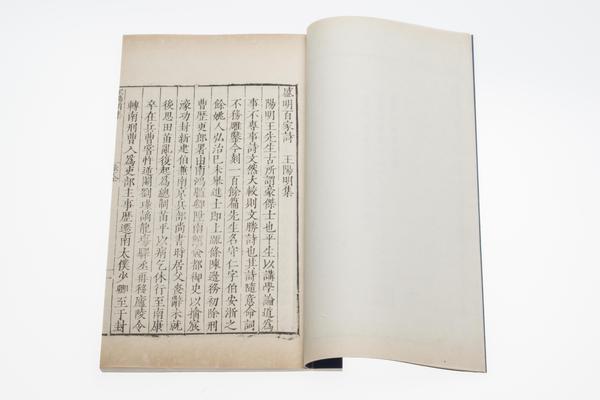 盛明百家詩 王陽明集
陽明王先生古所謂豪傑士也平生以講學論道爲
事不專事詩文然大較則文勝詩也其詩隨意命詞
不務雕鏨今剩一百餘篇先生名守仁字伯安浙之
餘姚人弘治己未舉進士即上疏條陳邊務初除刑
曹歷吏郎署由南鴻臚卿陞南贛僉都御史以擒宸
濠功封新建伯兼南京兵部尚書時居父喪辭不就
後思田苗亂復起爲總制苗平以病乞休行至南康
卒在兵曹嘗忤逆閹劉瑾謫龍塲驛丞再移廬陵令
轉南刑曹入爲吏部主事歷遷南太僕少卿至于封